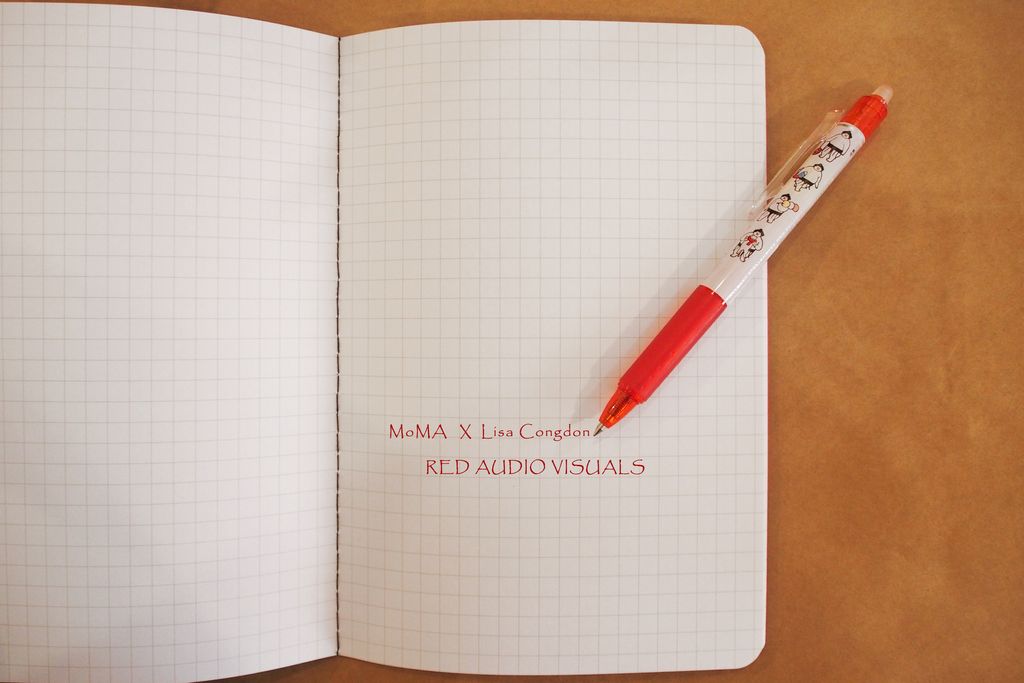 MoMA X Lisa Congdon
RED AUDIO VISUALS